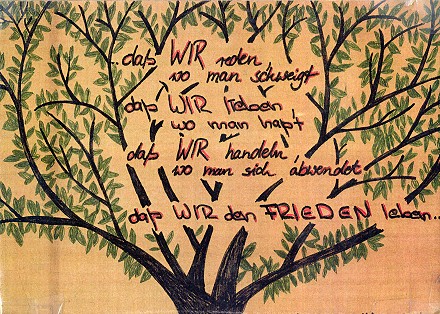 ..daß WIR reden
wo man schweigt
daß WIR lieben
wo man haßt
daß WIR handeln
wo man sich abwendet.
daß WIR den FRIEDEN leben..